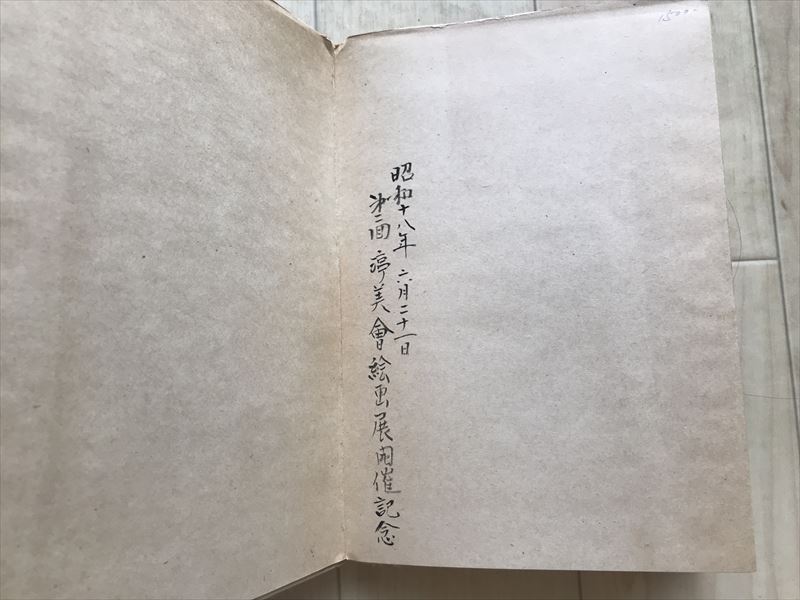 昭和十八年 六月二十一日
第二回 亭美會絵画展開催記念
1500-